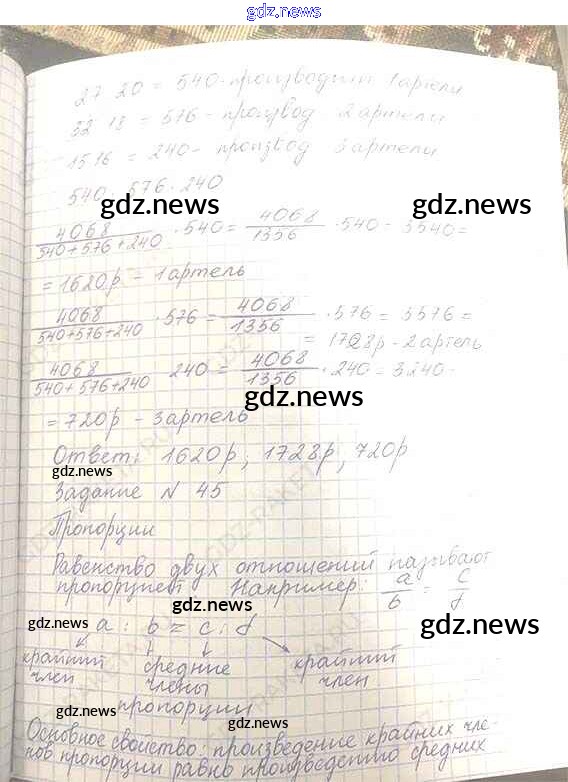 gdz.news
27 · 20 = 540 - производит 1 артели
32 · 18 = 576 - производ 2 артели
15 · 16 = 240 - производ 3 артели
540 : 576 : 240
gdz.news gdz.news
4068 / 540+576+240 · 540 = 4068 / 1356 · 540 = 3 · 540 =
= 1620р - 1 артель
4068 / 540+576+240 · 576 = 4068 / 1356 · 576 = 3 · 576 =
= 1728р - 2 артель
4068 / 540+576+240 · 240 = 4068 / 1356 · 240 = 3 · 240 =
gdz.news
= 720р - 3 артель
Ответ: 1620р, 1728р, 720р
gdz.news
Задание N 45
Пропорции
Равенство двух отношений называют
пропорцией. Например: a/b = c/d
gdz.news
gdz.news a : b = c : d gdz.news
крайний средние крайний
член члены член
пропорции
gdz.news gdz.news
Основное свойство: произведение крайних чле-
нов пропорции равно произведению средних
gdz.news